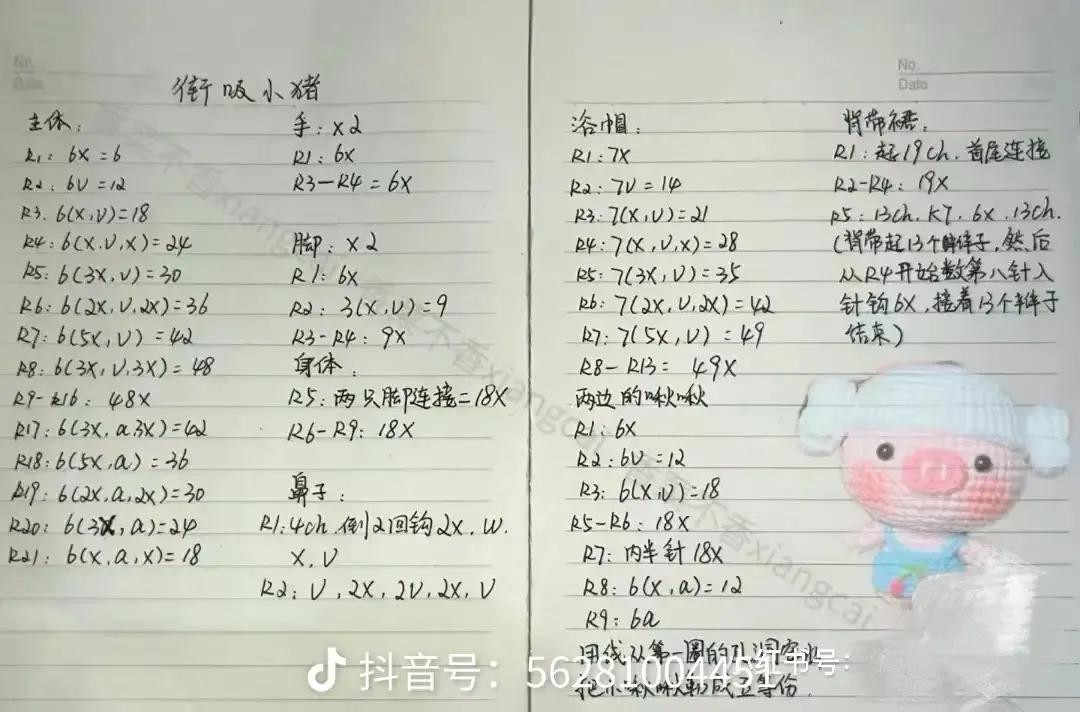 No.
Date
衔吸小猪
主体：
R1：6X=6
R2：6V=12
R3．6(X,V)=18
R4：6(X,V,X)=24
R5：6(3X,V)=30
R6：6(2X,V,2X)=36
R7：6(5X,V)=42
R8：6(3X,V,3X)=48
R9-R16：48X
R17：6(3X,a,3X)=42
R18：6(5X,a)=36
R19：6(2X,a,2X)=30
R20：6(3X,a)=24
R21：6(X,a,X)=18
手：X2
R1：6X
R3-R4=6X
脚：X2
R1：6X
R2：3(X,V)=9
R3-R4：9X
身体：
R5：两只脚连接=18X
R6-R9：18X
鼻子：
R1：4ch，倒2回钩2X，W．
X，V
R2：V，2X，2V，2X，V
浴帽：
R1：7X
R2：7V=14
R3：7(X,V)=21
R4：7(X,V,X)=28
R5：7(3X,V)=35
R6：7(2X,V,2X)=42
R7：7(5X,V)=49
R8-R13=49X
两边的啾啾
R1：6X
R2：6V=12
R3：6(X,V)=18
R5-R6：18X
R7：内半针18X
R8：6(X,a)=12
R9：6a
用线从第一圈的孔洞
把小啾啾勒成五等份．
No.
Date
背带裙：
R1：起19ch．首尾连接
R2-R4：19X
R5：13ch．K7．6X．13ch．
(背带起13个辫子，然后
从R4开始数第八针入
针钩6X，接着13个辫子
结束)
香菜不香xiangcai
香菜不香xiangcai
抖音号：56281004451
红书号：